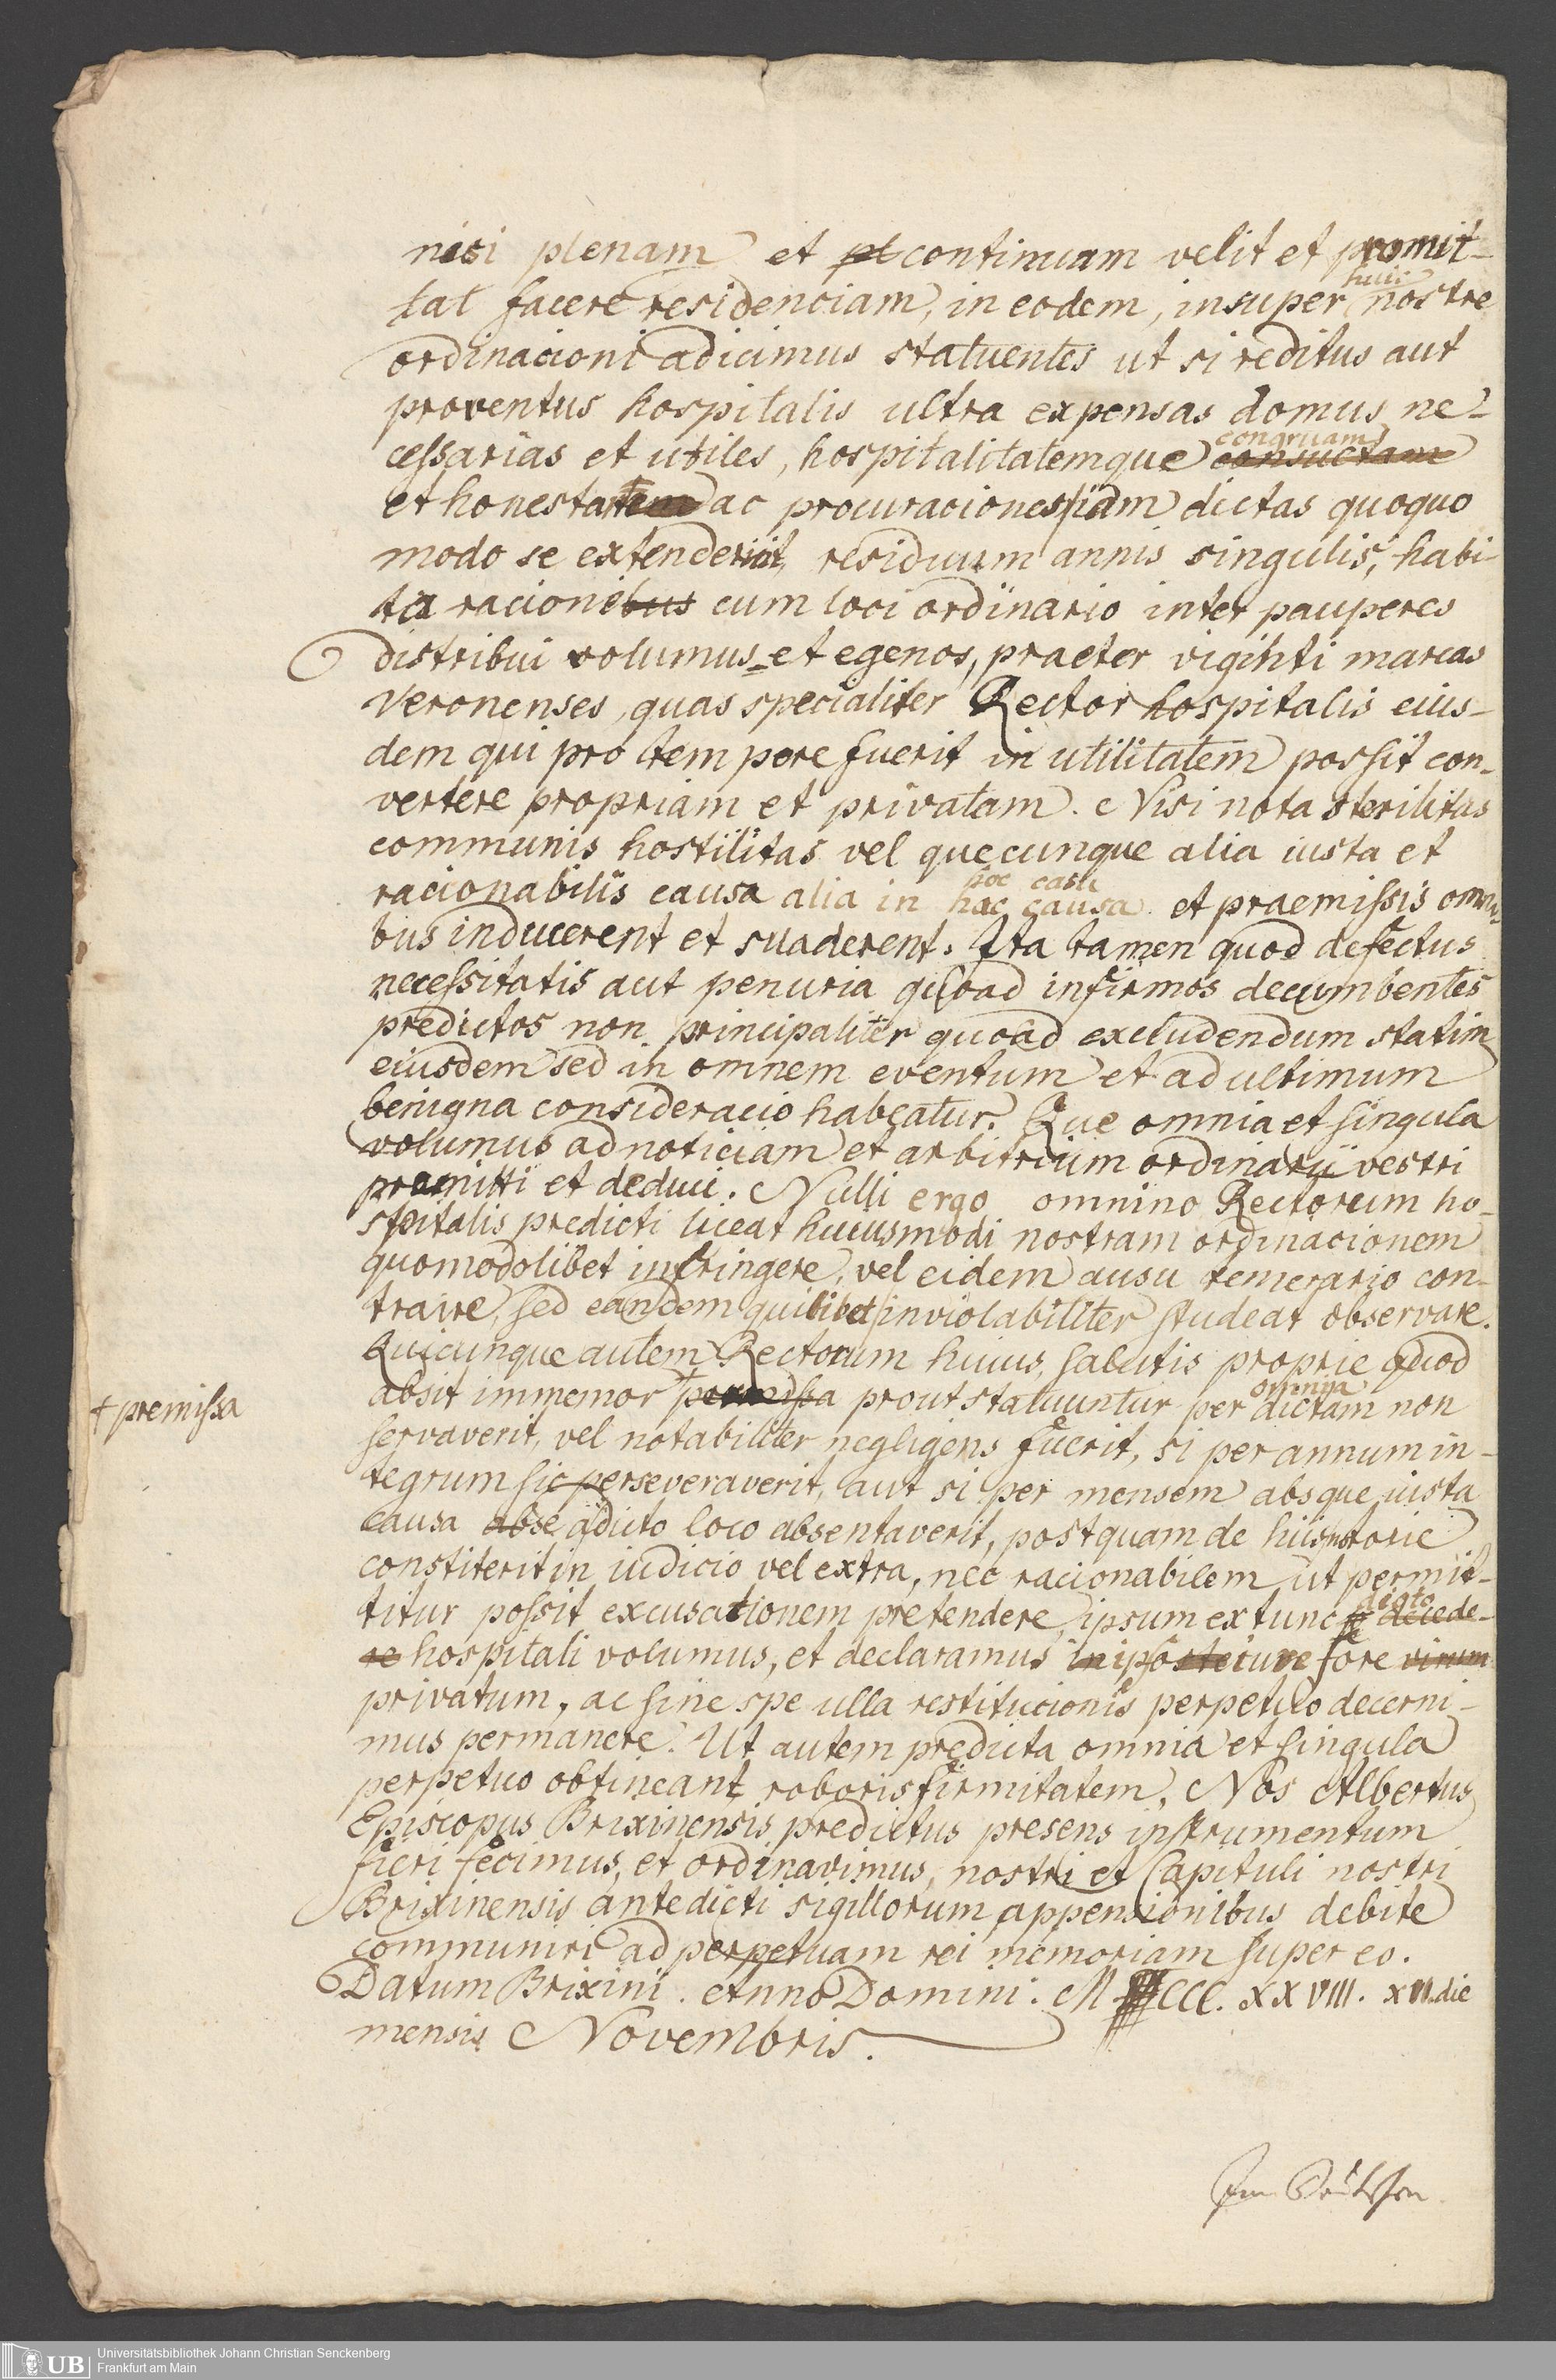 nisi plenam et pl continuam velit et promit-
huic
tat facere residenciam, in eodem, insuper nostre
ordinacioni adicimus statuentes ut si reditus aut
proventus hospitalis ultra expensas domus ne-
congruam
cessarias et utiles, hospitalitatemque consuetam
et honestatem ac procuraciones iam dictas quoquo
modo se extenderint, residuum annis singulis, habi-
ta racionebus cum loci ordinario inter pauperes
distribui volumus et egenos, praeter viginti marcas
Veronenses, quas specialiter Rector hospitalis eius-
dem qui pro tempore fuerit in utilitatem possit con-
vertere propriam et privatam. Nisi nota sterilitas
communis hostilitas vel quecunque alia iusta et
hoc casu
racionabilis causa alia in hac causa et praemissis omni-
bus inducerent et suaderent. Ita tamen quod defectus
necessitatis aut penuria quoad infirmos decumbentes
predictos non principaliter quoad excludendum statim
eiusdem sed in omnem eventum et ad ultimum
benigna consideracio habeatur. Que omnia et singula
volumus ad noticiam et arbitrium ordinarii vestri
premitti et deduci. Nulli ergo omnino Rectorum ho-
spitalis predicti liceat huiusmodi nostram ordinacionem
quomodolibet infringere, vel eidem ausu temerario con-
traire, sed eandem quilibet inviolabiliter studeat observare.
Quicunque autem Rectorum huius, salutis proprie quod
omnia
absit immemor + permissa prout statuuntur per dictam non
+ premissa
servaverit, vel notabiliter negligens fuerit, si per annum in-
tegrum sic perseveraverit, aut si per mensem absque iusta
causa abse a dicto loco absentaverit, postquam de hiis notorie
constiterit in iudicio vel extra, nec racionabilem ut permit-
dicto
titur possit excusationem pretendere, ipsum extunc se decede-
re hospitali volumus, et declaramus in ipso fore
privatum, ac sine spe ulla restitucionis perpetuo decerni-
mus permanere. Ut autem predicta omnia et singula
perpetuo obtineant roboris firmitatem, Nos Albertus
Episcopus Brixinensis predictus presens instrumentum
fieri fecimus, et ordinavimus, nostri et Capituli nostri
Brixinensis antedicti sigillorum appensionibus debite
communiri ad perpetuam rei memoriam super eo.
Datum Brixini. Anno Domini. M CCC. XXVIII. XVI. die
mensis Novembris.
Universitätsbibliothek Johann Christian Senckenberg
Frankfurt am Main
UB